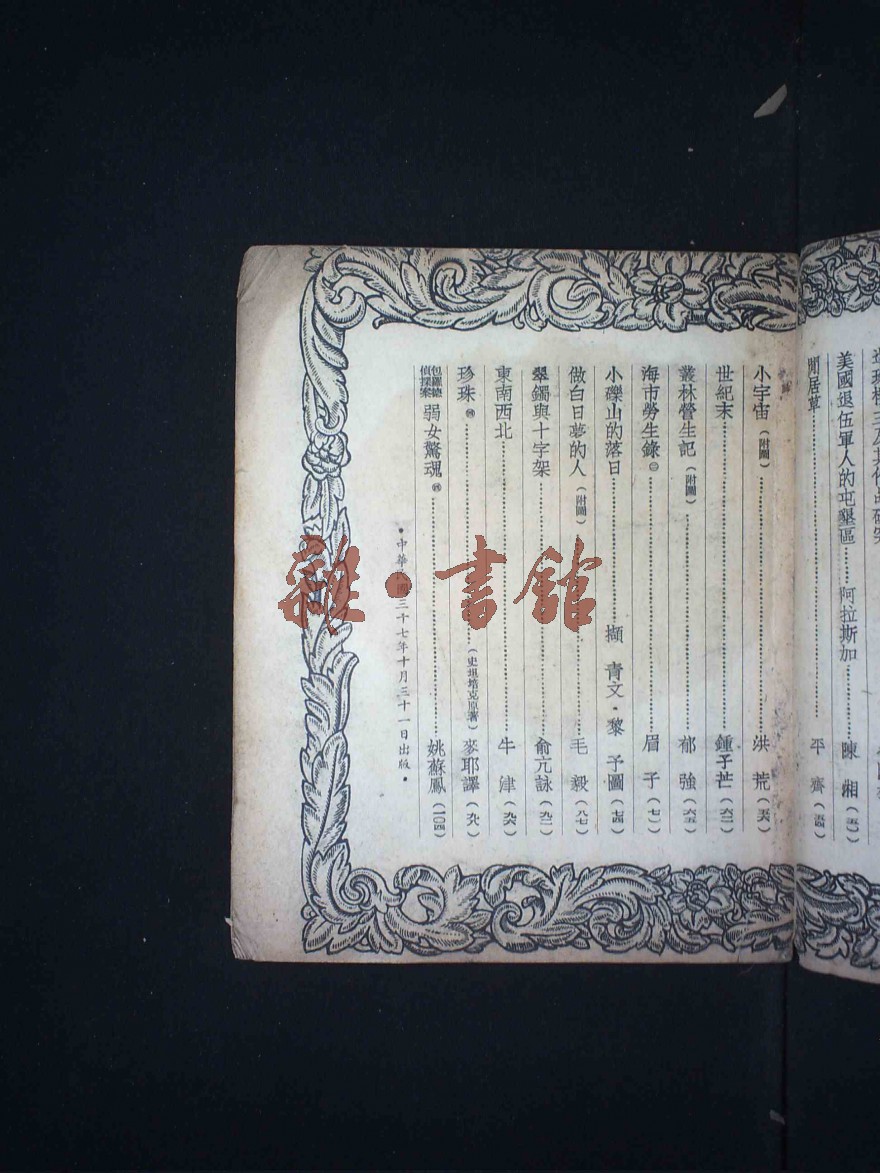 美國退伍軍人的屯墾區……阿拉斯加……陳湘（五一）
閒居草……平齊（五四）
小宇宙（附圖）……洪荒（五六）
世紀末……鍾子芒（六二）
叢林營生記（附圖）……郁強（六五）
海市勞生錄㊂……眉子（七一）
小礫山的落日 擷青文・黎予圖（七四）
做白日夢的人（附圖）……毛毅（八七）
翠鐲與十字架……俞亢詠（九二）
東南西北……牛津（九六）
珍珠㊃……（史坦培克原著）麥耶譯（九八）
包羅德偵探案 弱女驚魂㊃……姚蘇鳳（一〇四）
・中華民國三十七年十月三十一日出版・
雜・書館